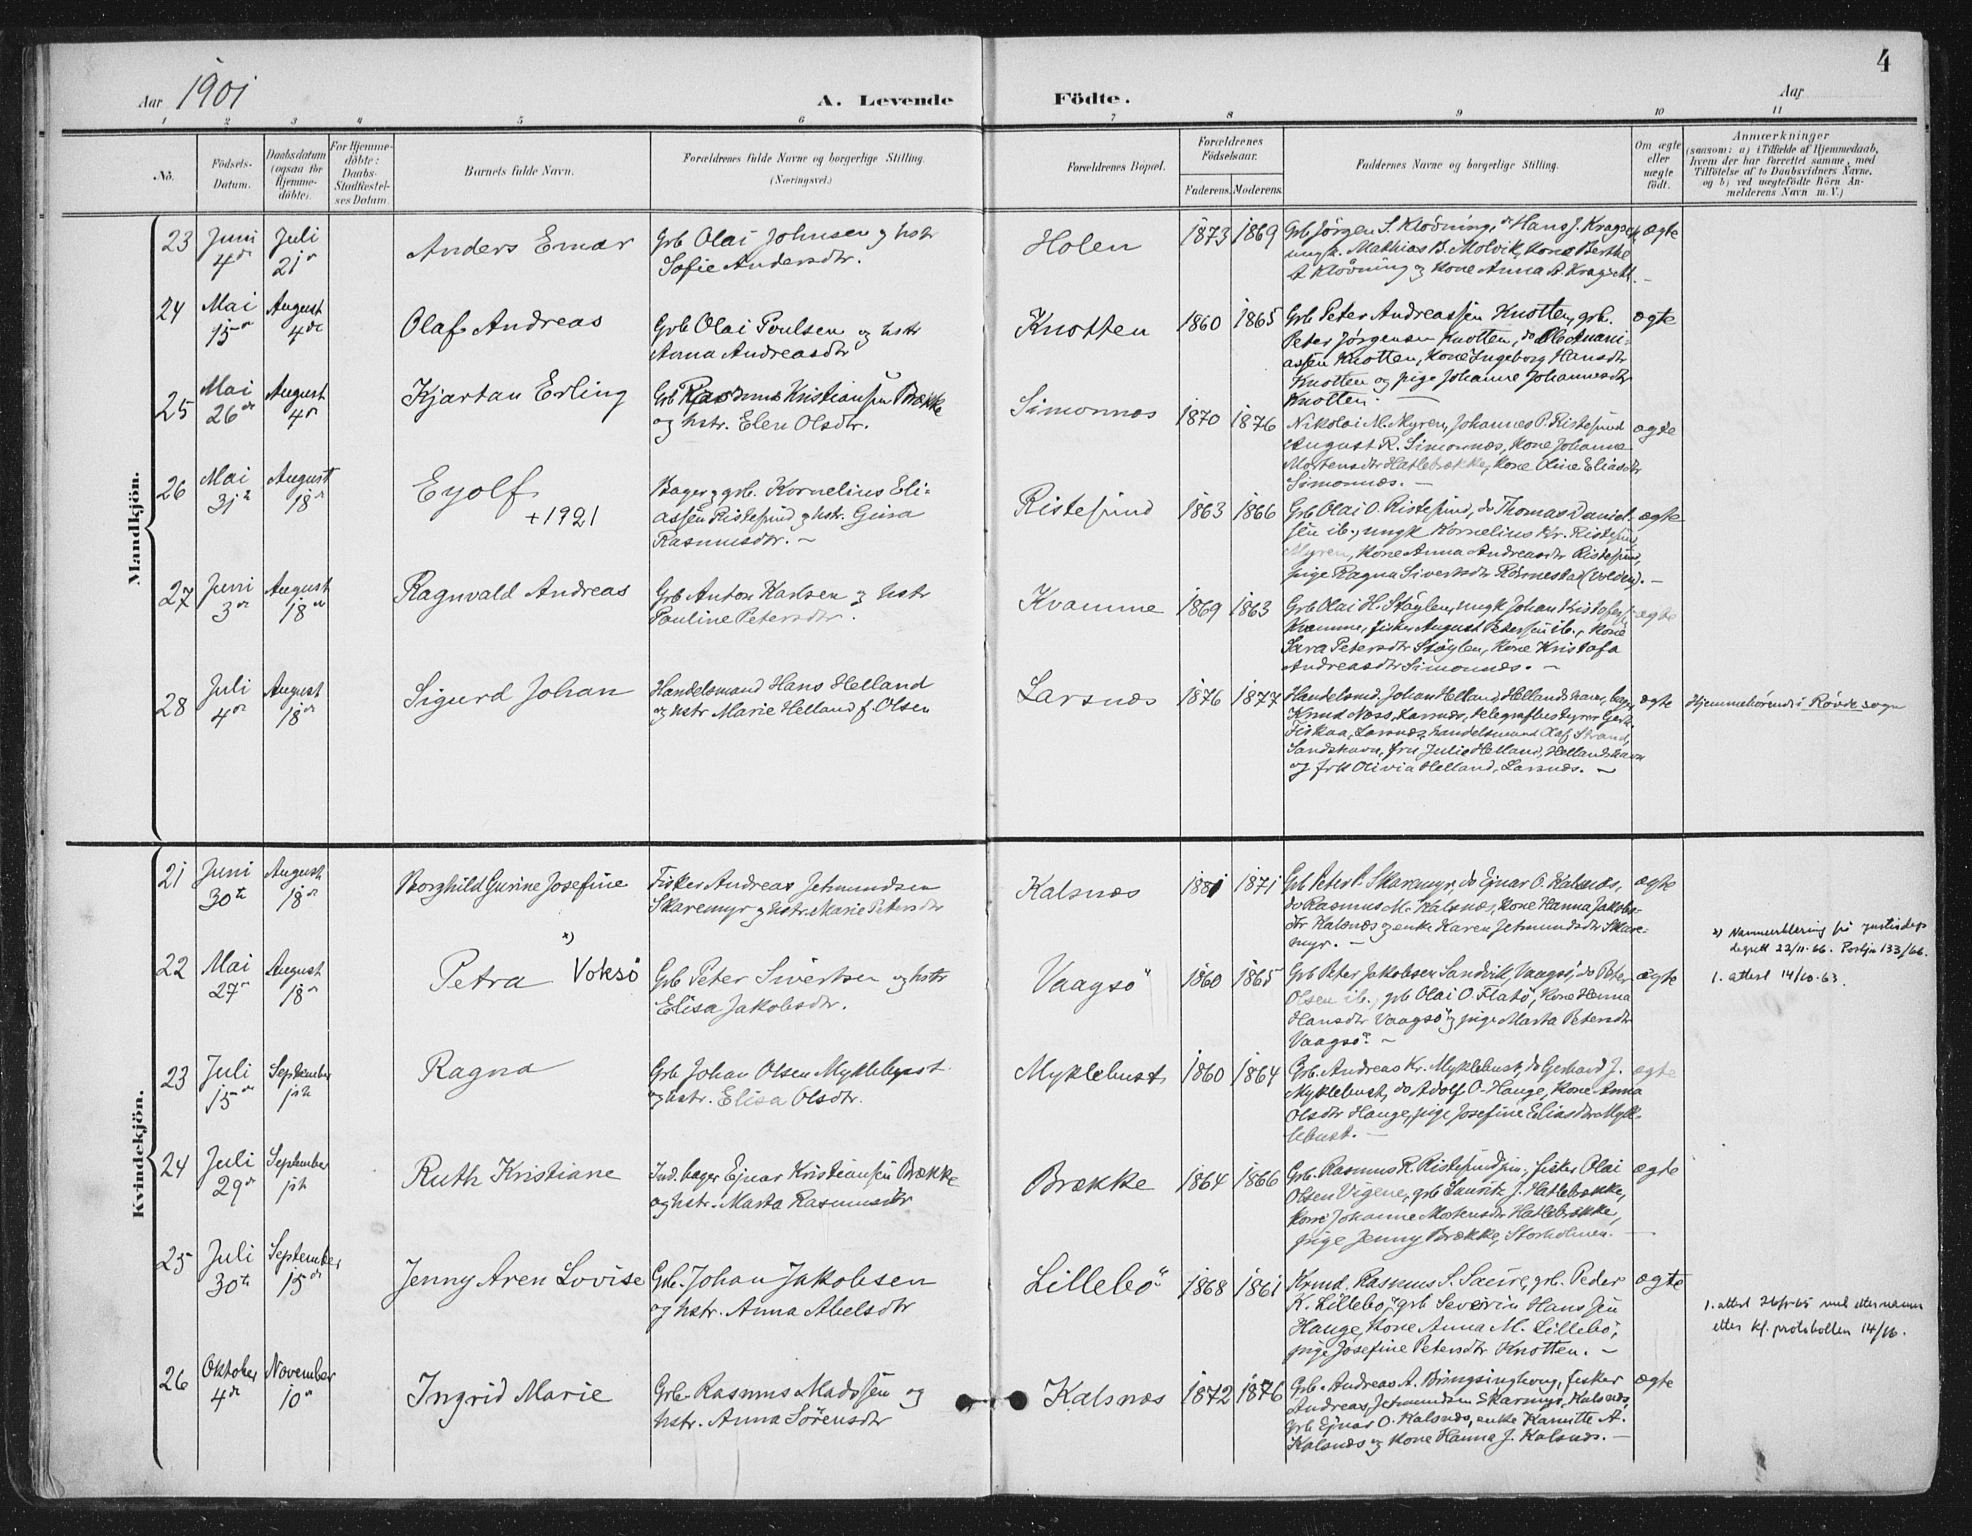 4
Aar 1901
A. Levende Födte.
Aar
1 2 3 4 5 6 7 8 9 10 11
No.
Födsels-
Datum.
Daabsdatum
(ogsaa for
Hjemme-
döbte).
For Hjemme-
döbte:
Daabs-
Stadfæstel-
ses Datum.
Barnets fulde Navn.
Forældrenes fulde Navne og borgerlige Stilling.
(Næringsvei.)
Forældrenes Bopæl.
Forældrenes
Födselsaar.
Faderens. Moderens.
Faddernes Navne og borgerlige Stilling.
Om ægte
eller
uægte
födt.
Anmærkninger
(saasom: a) i Tilfælde af Hjemmedaab,
hvem der har forrettet samme, med
Tilföielse af to Daabsvidners Navne,
og b) ved uægtefödte Börn An-
melderens Navn m. V.)
Mandkjön.
23
Juni
4de
Juli
21de
Anders Einar
Grb Olai Johnsen og hstr
Sofie Andersdtr.
Holen
1873 1869
Grb Jörgen S. Klövning, do Hans J. Kragset,
ungk. Mathias B. Molvik, kone Berthe
A. Klövning og kone Anna A. Kragset.
ægte
24
Mai
15de
August
4de
Olaf Andreas
Grb Olai Poulsen og hstr
Anna Andreasdtr
Knotten
1860 1865
Grb Peter Andreassen Knotten, grb.
Peter Jörgensen Knotten, do Ole Anani-
assen Knotten, Kone Ingeborg Hansdtr
Knotten og pige Johanne Johannesdtr
Knotten. —
ægte
25
Mai
26de
August
4de
Kjartan Erling
Grb Rasmus Kristiansen Brække
og hstr. Elen Olsdtr.
Simonnæs
1870 1876
Nikolai M. Myren, Johannes P. Ristesund
August R. Simonnæs, kone Johanne
Mortensdtr Hatlebrække, kone Oline Eliasdtr
Simonnæs. —
ægte
26
Mai
31te
August
18de
Eyolf
+ 1921
Bager og grb. Kornelius Eli-
assen Ristesund og hstr. Gjura
Rasmusdtr. —
Ristesund
1863 1866
Grb Olai O. Ristesund, do Thomas Daniel-
sen ib., ungk Kornelius Kr. Ristesund,
Myren, kone Anna Andreasdtr Ristesund,
pige Ragna Sivertsdtr Rörnestad (Volden). —
ægte
27
Juni
3de
August
18de
Ragnvald Andreas
Grb Anton Karlsen og hstr
Pauline Petersdtr.
Kvamme
1869 1863
Grb Olai H. Stöylen, ungk Johan Kristofers.
Kvamme, fisker August Petersen ib., kone
Sara Petersdtr Stöylen, kone Kristofa
Andreasdtr Simonnæs. —
ægte
28
Juli
4de
August
18de
Sigurd Johan
Handelsmand Hans Helland
og hstr Marie Helland f. Olsen
Larsnæs
1876 1877
Handelsmd. Johan Helland, Hellandshavn, bager
Knud Næss, Larsnæs, telegrafbestyrer Gerh.
Fiskaa, Larsnæs, handelsmand Olaf Strand,
Sandshavn, fru Julie Helland, Hellandshavn
og frk Olivia Helland, Larsnæs. —
ægte
Hjemmehörende i Rövde sogn
Kvindekjön.
21
Juni
30te
August
18de
Borghild Gurine Josefine
Fisker Andreas Jetmundsen
Skaremyr og hstr. Marie Petersdtr
Kalsnæs
1881 1871
Grb Peter P. Skaremyr, do Ejnar O. Kalsnæs,
do Rasmus M. Kalsnæs, kone Hanna Jakobs-
dtr Kalsnæs og enke Karen Jetmundsdtr Skare-
myr. —
ægte
22
Mai
27de
August
18de
x)
Petra Voksö
Grb Peter Sivertsen og hstr
Elisa Jakobsdtr.
Vaagsö
1860 1865
Grb Peter Jakobsen Sandvik, Vaagsö, do Peter
Olsen ib., grb Olai O. Flatö, kone Hanna
Hansdtr Vaagsö og pige Marta Petersdtr
Vaagsö. —
ægte
x) Navneendring frå justisdep
22/11-66. 133/66.
1. attest 14/10-63.
23
Juli
15de
September
1ste
Ragna
Grb Johan Olsen Myklebust
og hstr. Elisa Olsdtr.
Myklebust
1860 1864
Grb. Andreas Kr. Myklebust, do Gerhard J.
Myklebust, do Adolf O. Hauge, kone Anna
Olsdtr Hauge, pige Josefine Eliasdtr Myk-
lebust. —
ægte
24
Juli
29de
September
1ste
Ruth Kristiane
Ind. bager Ejnar Kristiansen Brække
og hstr. Marta Rasmusdtr
Brække
1864 1866
Grb. Rasmus R. Ristesund jun., fisker Olai
Olsen Vigene, grb Lauritz J. Hatlebrække,
kone Johanne Mortensdtr Hatlebrække,
pige Jenny Brække, Storholmen. —
ægte
25
Juli
30te
September
15de
Jenny Aren Lovise
Grb. Johan Jakobsen
og hstr. Anna Abelsdtr
Lillebö
1868 1861
Krmd. Rasmus S. Saure, grb. Peder
K. Lillebö, grb Severin Hanssen
Hauge, kone Anna M. Lillebö,
pige Josefine Petersdtr Knotten. —
ægte
1. attest med etternamn
etter kl. protokollen 14/16.
26
Oktober
4de
November
10de
Ingrid Marie
Grb. Rasmus Madssen og
hstr. Anna Sörensdtr
Kalsnæs
1872 1876
Grb. Andreas A. Bringsinghaug, fisker
Andreas Jetmundsen Skaremyr, Kalsnæs,
grb Ejnar O. Kalsnæs, enke Kamitte A.
Kalsnæs og kone Hanna J. Kalsnæs. —
ægte